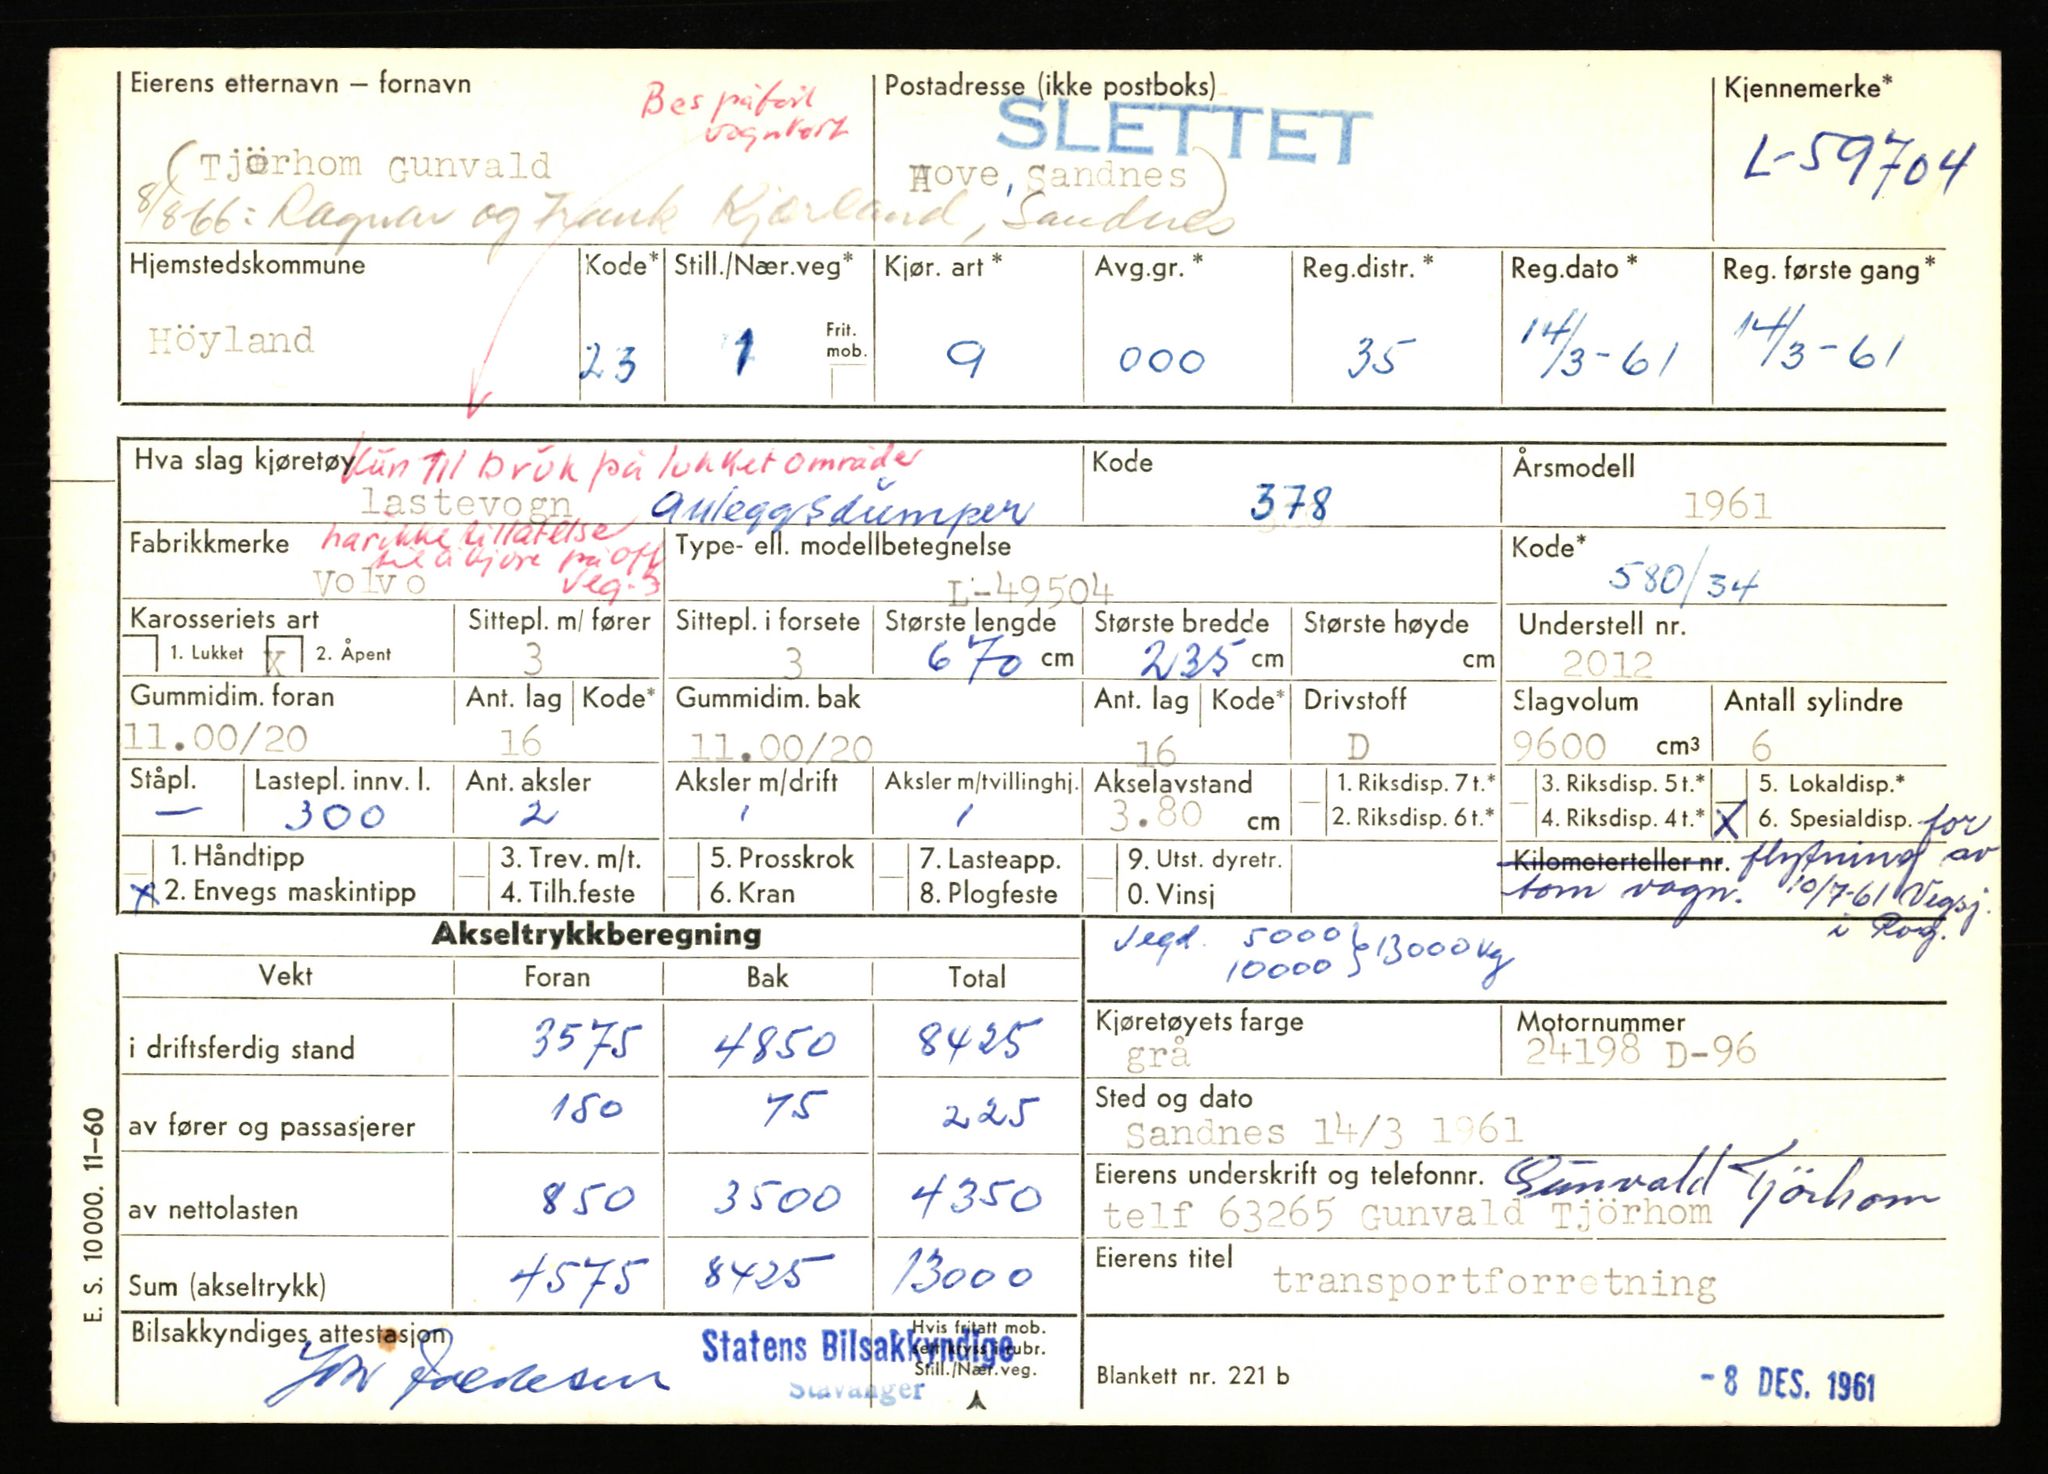 Eierens etternavn – fornavn
Bes påført
vognkort
Postadresse (ikke postboks)
SLETTET
Kjennemerke*
L-59704
(Tjörhom Gunvald
Hove, Sandnes)
8/8-66: Ragnar og Frank Kjærland, Sandnes
Hjemstedskommune
Kode*
Still./Nær.veg*
Kjør. art*
Avg.gr.*
Reg.distr.*
Reg.dato*
Reg. første gang*
Höyland
23
1
Frit.
mob.
9
000
35
14/3-61
14/3-61
Hva slag kjøretøy
Kun til bruk på lukket område
lastevogn anleggsdumper
Kode
378
Årsmodell
1961
Fabrikkmerke
har ikke tillatelse
til å kjøre på off.
veg.
Volvo
Type- ell. modellbetegnelse
L-49504
Kode*
580/34
Karosseriets art
1. Lukket X 2. Åpent
Sittepl. m/ fører
3
Sittepl. i forsete
3
Største lengde
670 cm
Største bredde
235 cm
Største høyde
cm
Understell nr.
2012
Gummidim. foran
11.00/20
Ant. lag
16
Kode*
Gummidim. bak
11.00/20
Ant. lag
16
Kode*
Drivstoff
D
Slagvolum
9600 cm³
Antall sylindre
6
Ståpl.
—
Lastepl. innv. l.
300
Ant. aksler
2
Aksler m/drift
1
Aksler m/tvillinghj.
1
Akselavstand
3.80 cm
1. Riksdisp. 7 t.*
2. Riksdisp. 6 t.*
3. Riksdisp. 5 t.*
4. Riksdisp. 4 t.*
5. Lokaldisp.*
X 6. Spesialdisp. for
1. Håndtipp
X 2. Envegs maskintipp
3. Trev. m/t.
4. Tilh.feste
5. Prosskrok
6. Kran
7. Lasteapp.
8. Plogfeste
9. Utst. dyretr.
0. Vinsj
Kilometerteller nr. flytning av
tom vogn. 10/7-61 Vegsj.
i Rog.
Akseltrykkberegning
Vegd. 5000 } 13000 kg
10000
Vekt
Foran
Bak
Total
i driftsferdig stand
3575
4850
8425
av fører og passasjerer
150
75
225
av nettolasten
850
3500
4350
Sum (akseltrykk)
4575
8425
13000
Kjøretøyets farge
grå
Motornummer
24198 D-96
Sted og dato
Sandnes 14/3 1961
Eierens underskrift og telefonnr. Gunvald Tjörhom
telf 63265 Gunvald Tjörhom
Eierens titel
transportforretning
Bilsakkyndiges attestasjon
Statens Bilsakkyndige
Stavanger
Hvis fritatt mob.
sett kryss i rubr.
Still./Nær.veg.
Blankett nr. 221 b
- 8 DES. 1961
E. S. 10000. 11–60